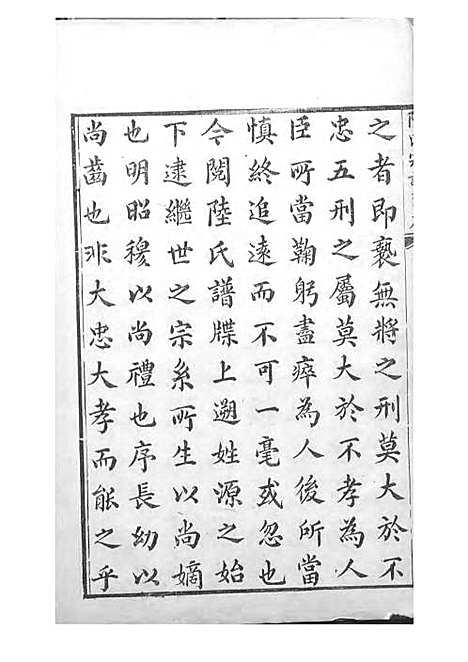 之者即褻無將之刑莫大於不
忠五刑之屬莫大於不孝為人
臣所當鞠躬盡瘁為人後所當
慎終追遠而不可一毫或忽也
今閱陸氏譜牒上遡姓源之始
下逮繼世之宗系所生以尚嫡
也明昭穆以尚禮也序長幼以
尚齒也非大忠大孝而能之乎